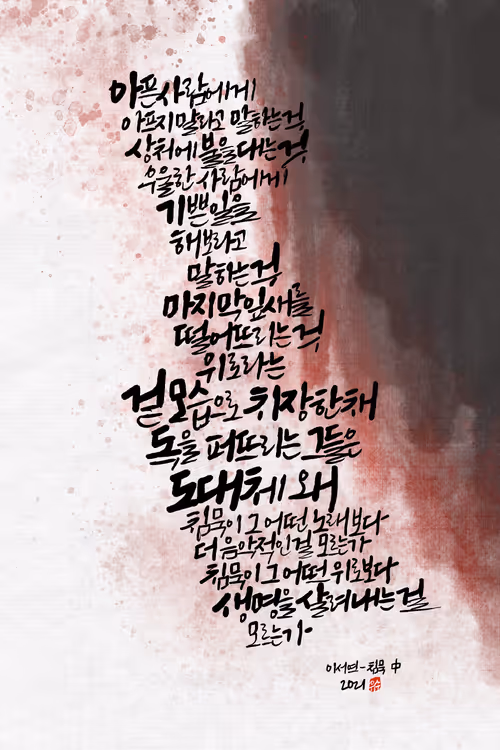 아픈 사람에게
아프지 말라고 말하는 것
상처에 불을 대는 것
우울한 사람에게
기쁜 일을
해보라고
말하는 것
마지막 잎새를
떨어뜨리는 것
위로라는
겉모습으로 위장한 채
독을 퍼뜨리는 그들은
도대체 왜
침묵이 그 어떤 노래보다
더 음악적인 걸 모르는가
침묵이 그 어떤 위로보다
생명을 살려내는 걸
모르는가
이서연-침묵 中
2021